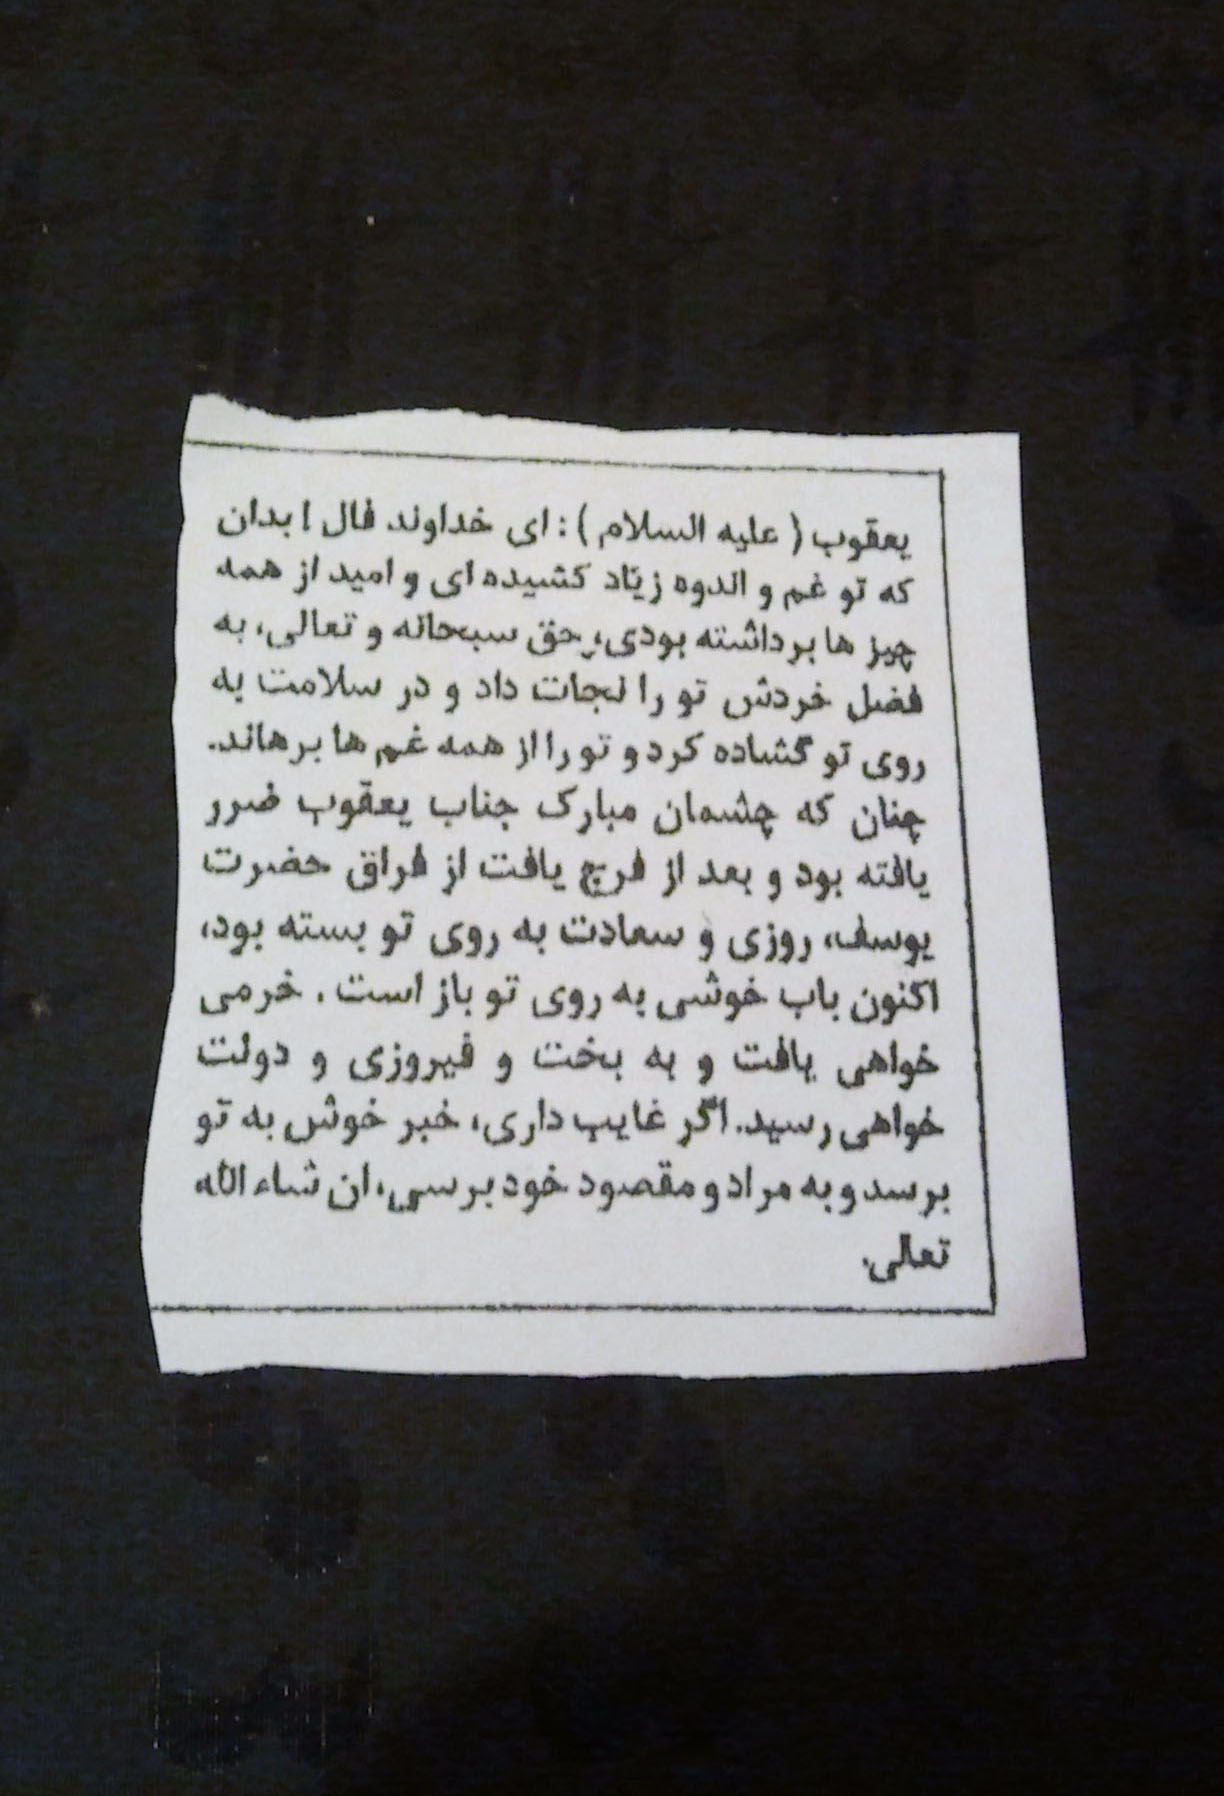 یعقوب ( علیه السلام ) : ای خداوند فال ! بدان
که تو غم و اندوه زیاد کشیده ای و امید از همه
چیز ها برداشته بودی، حق سبحانه و تعالی، به
فضل خردش تو را نجات داد و در سلامت به
روی تو گشاده کرد و تو را از همه غم ها برهاند.
چنان که چشمان مبارک جناب یعقوب ضرر
یافته بود و بعد از فرج یافت از فراق حضرت
یوسف، روزی و سعادت به روی تو بسته بود،
اکنون باب خوشی به روی تو باز است . خرمی
خواهی یافت و به بخت و فیروزی و دولت
خواهی رسید. اگر غایب داری، خبر خوش به تو
برسد و به مراد و مقصود خود برسی، ان شاء الله
تعالی.